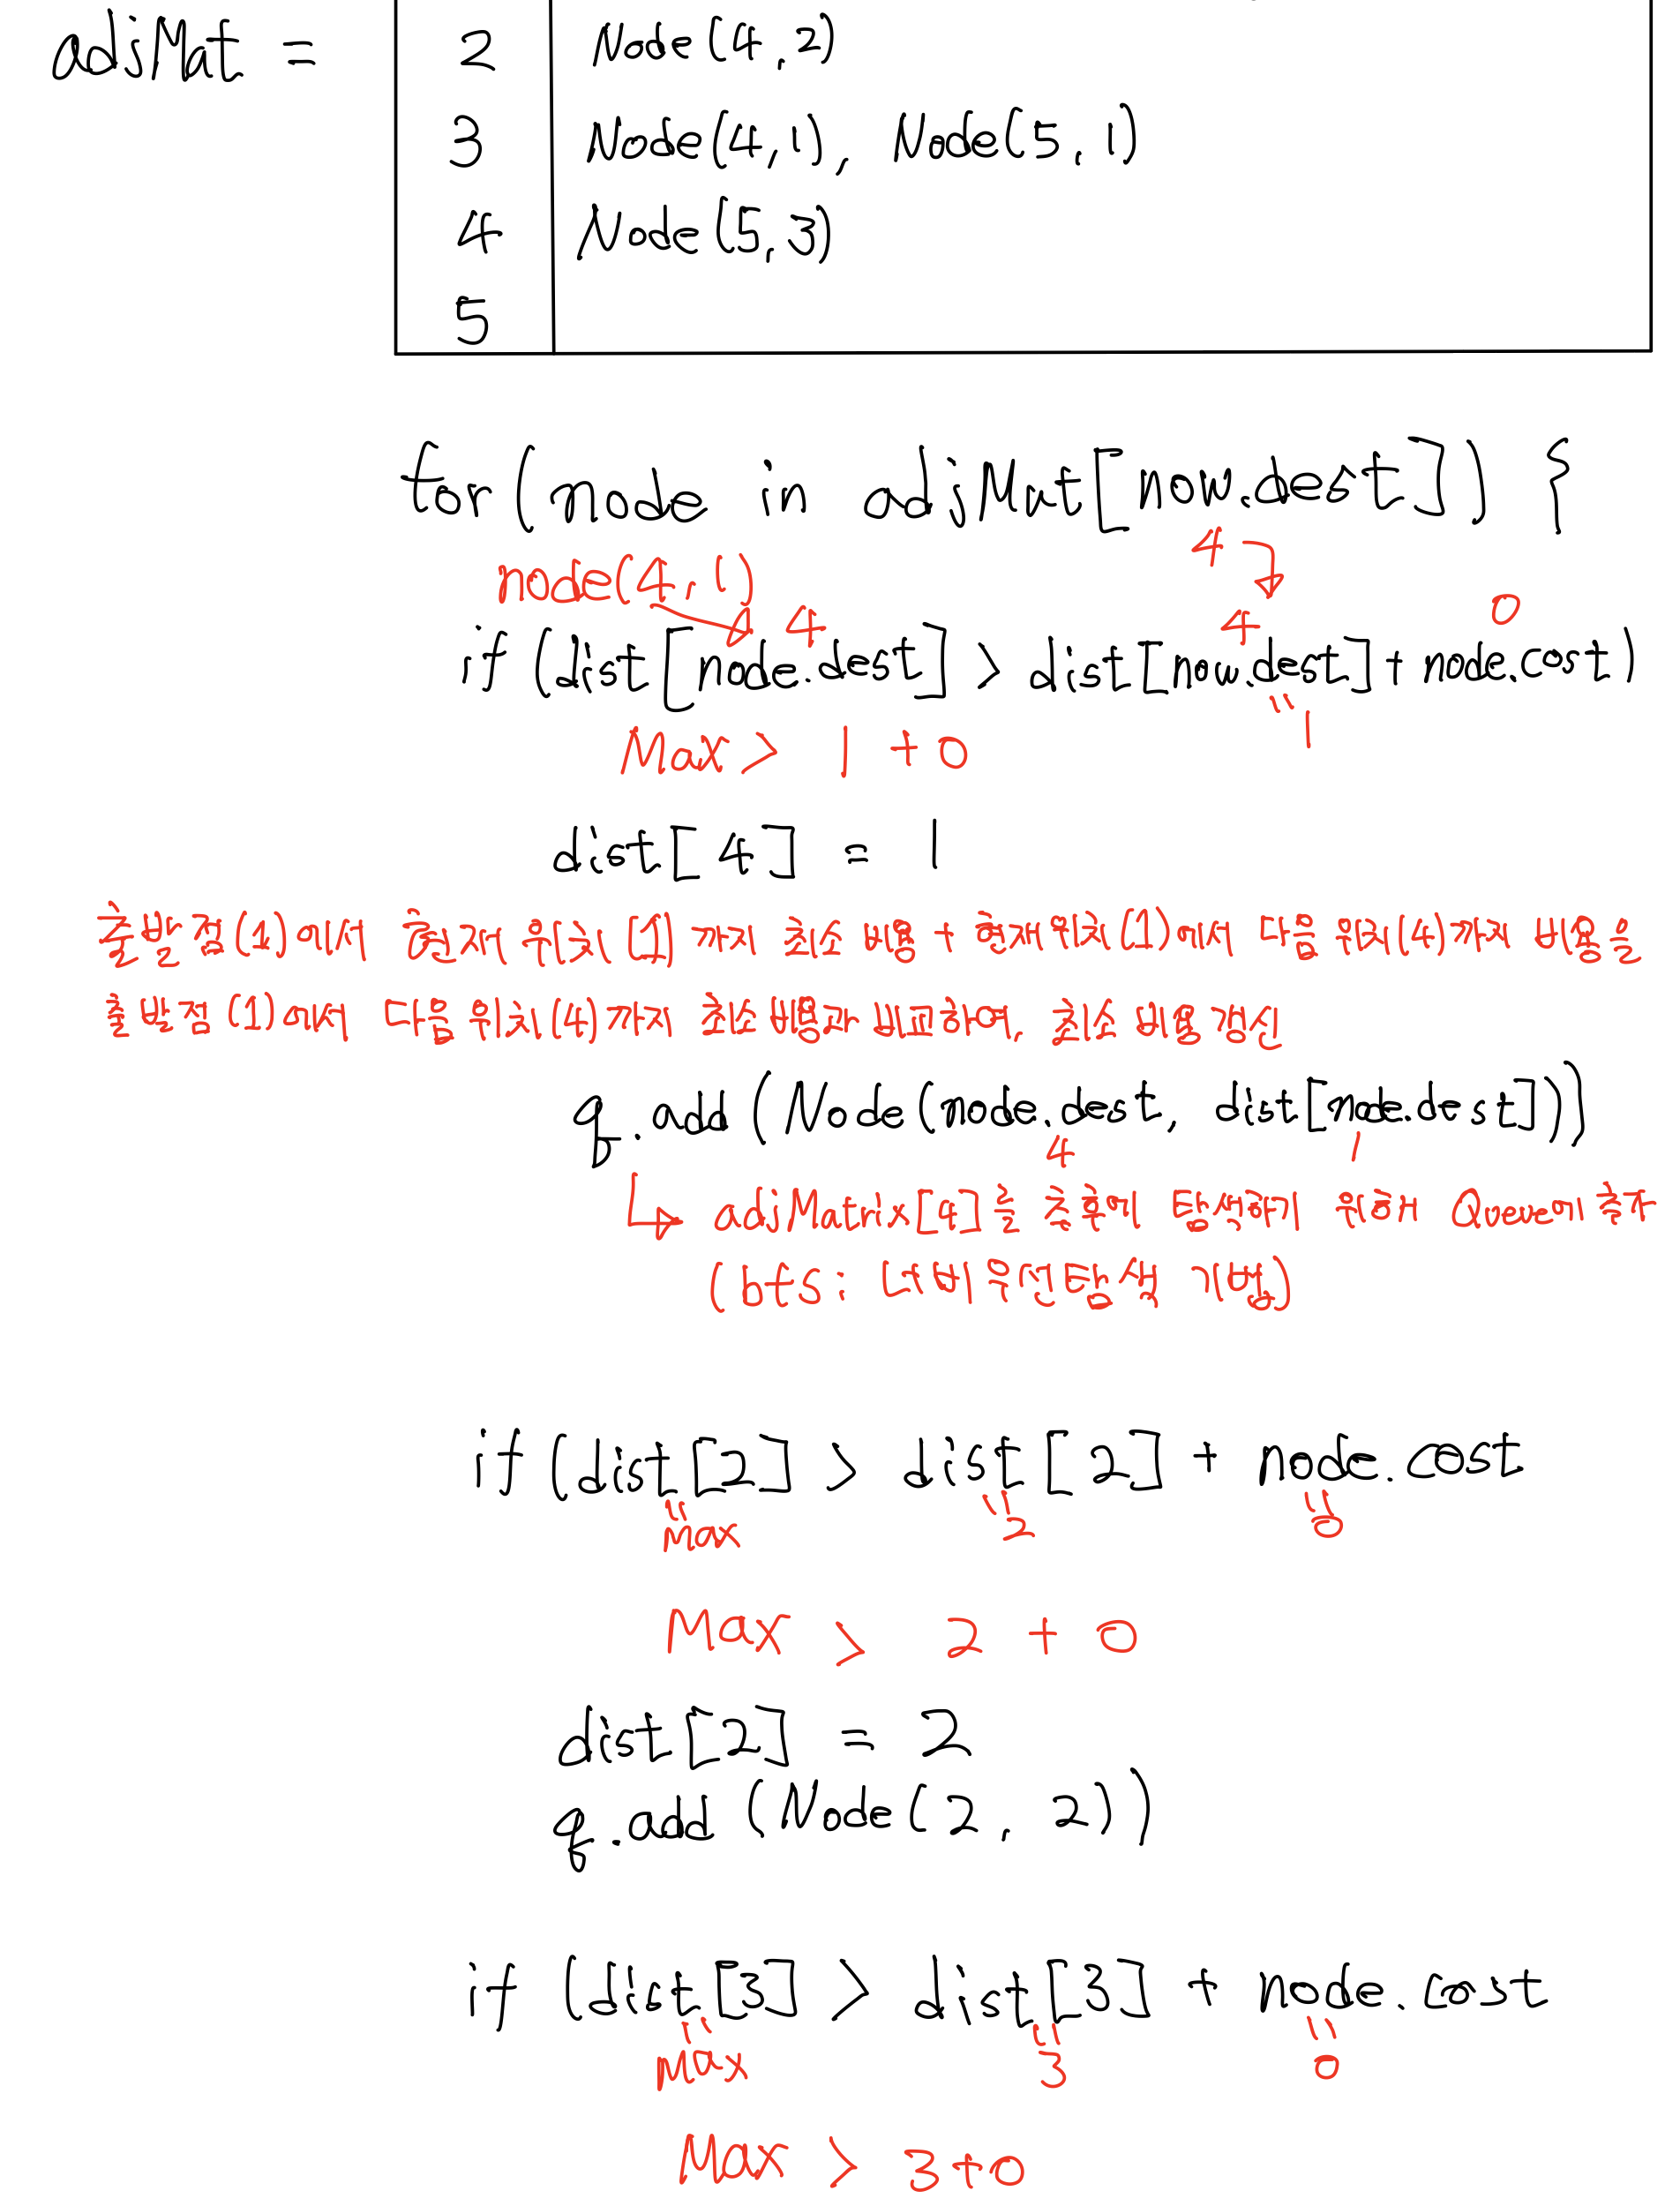 adjMat =
2 Node(4,2)
3 Node(4,1), Node(5,1)
4 Node(5,3)
5
for(node in adjMat[now.dest]) {
node(4,1) 4
4 4 0
if (dist[node.dest] > dist[now.dest] + node.cost)
"1
Max > 1 + 0
dist[4] = 1
출발점(1)에서 현재 위치(1)까지 최소 비용 + 현재위치(1)에서 다음 위치(4)까지 비용을
출발점(1)에서 다음 위치(4)까지 최소비용과 비교하여, 최소 비용 갱신
q.add(Node(node.dest, dist[node.dest]))
4 1
↳ adjMatrix[4]을 추후에 탐색하기 위해 Queue에 추가
(bfs: 너비우선탐색 기법)
if (dist[2] > dist[2] + node.cost
" " "
max 2 0
Max > 2 + 0
dist[2] = 2
q.add(Node(2, 2))
if (dist[3] > dist[3] + node.cost
" " "
max 3 0
Max > 3+0